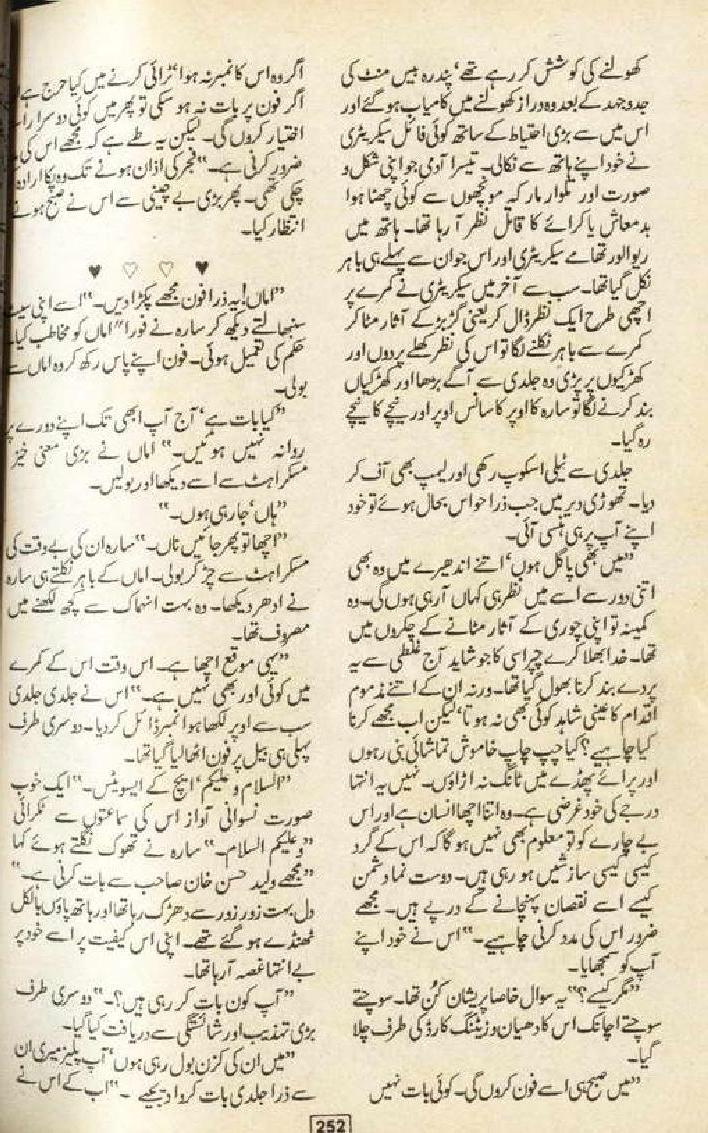 کھولنے کی کوشش کر رہے تھے‘ پندرہ بیس منٹ کی
جدوجہد کے بعد وہ دراز کھولنے میں کامیاب ہوگئے اور
اس میں سے بڑی احتیاط کے ساتھ کوئی فائل سیکریٹری
نے خود اپنے ہاتھ سے نکالی۔ تیسرا آدمی جو اپنی شکل و
صورت اور تلوار مار کہ مونچھوں سے کوئی چھٹا ہوا
بدمعاش یا کرائے کا قاتل نظر آ رہا تھا۔ ہاتھ میں
ریوالور تھامے سیکریٹری اور اس جوان سے پہلے ہی باہر
نکل گیا تھا۔ سب سے آخر میں سیکریٹری نے کمرے پر
اچھی طرح ایک نظر ڈال کر یعنی گڑبڑ کے آثار مٹا کر
کمرے سے باہر نکلنے لگا تو اس کی نظر کھلے پردوں اور
کھڑکیوں پر پڑی وہ جلدی سے آگے بڑھا اور کھڑکیاں
بند کرنے لگا تو سارہ کا اوپر کا سانس اوپر اور نیچے کا نیچے
رہ گیا۔
جلدی سے ٹیلی اسکوپ رکھی اور لیمپ بھی آف کر
دیا۔ تھوڑی دیر میں جب ذرا حواس بحال ہوئے تو خود
اپنے آپ پر ہی ہنسی آئی۔
”میں بھی پاگل ہوں‘ اتنے اندھیرے میں وہ بھی
اتنی دور سے اسے میں نظر ہی کہاں آ رہی ہوں گی۔ وہ
کمینہ تو اپنی چوری کے آثار مٹانے کے چکروں میں
تھا۔ خدا بھلا کرے چپراسی کا جو شاید آج غلطی سے یہ
پردے بند کرنا بھول گیا تھا۔ ورنہ ان کے اتنے مذموم
اقدام کا عینی شاہد کوئی بھی نہ ہوتا‘ لیکن اب مجھے کرنا
کیا چاہیے؟ کیا چپ چاپ خاموش تماشائی بنی رہوں
اور پرائے پھڈے میں ٹانگ نہ اڑاؤں۔ نہیں یہ انتہا
درجے کی خود غرضی ہے۔ وہ اتنا اچھا انسان ہے اور اس
بے چارے کو تو معلوم بھی نہیں ہوگا کہ اس کے گرد
کیسی کیسی سازشیں ہو رہی ہیں۔ دوست نما دشمن
کیسے اسے نقصان پہنچانے کے درپے ہیں۔ مجھے
ضرور اس کی مدد کرنی چاہیے۔“ اس نے خود اپنے
آپ کو سمجھایا۔
”مگر کیسے؟“ یہ سوال خاصا پریشان کن تھا۔ سوچتے
سوچتے اچانک اس کا دھیان وزیٹنگ کارڈ کی طرف چلا
گیا۔
”میں صبح ہی اسے فون کروں گی۔ کوئی بات نہیں
اگر وہ اس کا نمبر نہ ہوا‘ ٹرائی کرنے میں کیا حرج ہے
اگر فون پر بات نہ ہو سکی تو پھر میں کوئی دوسرا
اختیار کروں گی۔ لیکن یہ طے ہے کہ مجھے اس کی
ضرور کرنی ہے۔“ فجر کی اذان ہونے تک وہ پکا ارادہ
چکی تھی۔ پھر بڑی بے چینی سے اس نے صبح ہونے
انتظار کیا۔
♥ ♡ ♡ ♥
”اماں! یہ ذرا فون مجھے پکڑا دیں۔“ اسے اپنی سیٹ
سنبھالتے دیکھ کر سارہ نے فورا“ اماں کو مخاطب کیا۔
حکم کی تعمیل ہوئی۔ فون اپنے پاس رکھ کر وہ اماں سے
بولی۔
”کیا بات ہے‘ آج آپ ابھی تک اپنے دورے پر
روانہ نہیں ہوئیں۔“ اماں نے بڑی معنی خیز
مسکراہٹ سے اسے دیکھا اور بولیں۔
”ہاں‘ جا رہی ہوں۔“
”اچھا تو پھر جائیں ناں۔“ سارہ ان کی بے وقت کی
مسکراہٹ سے چڑ کر بولی۔ اماں کے باہر نکلتے ہی سارہ
نے ادھر دیکھا۔ وہ بہت انہماک سے کچھ لکھنے میں
مصروف تھا۔
”یہی موقع اچھا ہے۔ اس وقت اس کے کمرے
میں کوئی اور بھی نہیں ہے۔“ اس نے جلدی جلدی
سب سے اوپر لکھا ہوا نمبر ڈائل کر دیا۔ دوسری طرف
پہلی ہی بیل پر فون اٹھا لیا گیا تھا۔
”السلام و علیکم‘ ایچ کے ایسوسی ٹس۔“ ایک خوب
صورت نسوانی آواز اس کی سماعتوں سے ٹکرائی
”وعلیکم السلام۔“ سارہ نے تھوک نگلتے ہوئے کہا
”مجھے ولید حسن خان صاحب سے بات کرنی ہے۔“
دل بہت زور زور سے دھڑک رہا تھا اور ہاتھ پاؤں بالکل
ٹھنڈے ہو گئے تھے۔ اپنی اس کیفیت پر اسے خود پر
بے انتہا غصہ آ رہا تھا۔
”آپ کون بات کر رہی ہیں؟۔“ دوسری طرف
بڑی تہذیب اور شائستگی سے دریافت کیا گیا۔
”میں ان کی کزن بول رہی ہوں‘ آپ پلیز میری ان
سے ذرا جلدی بات کروا دیجیے۔“ اب کے اس نے
252